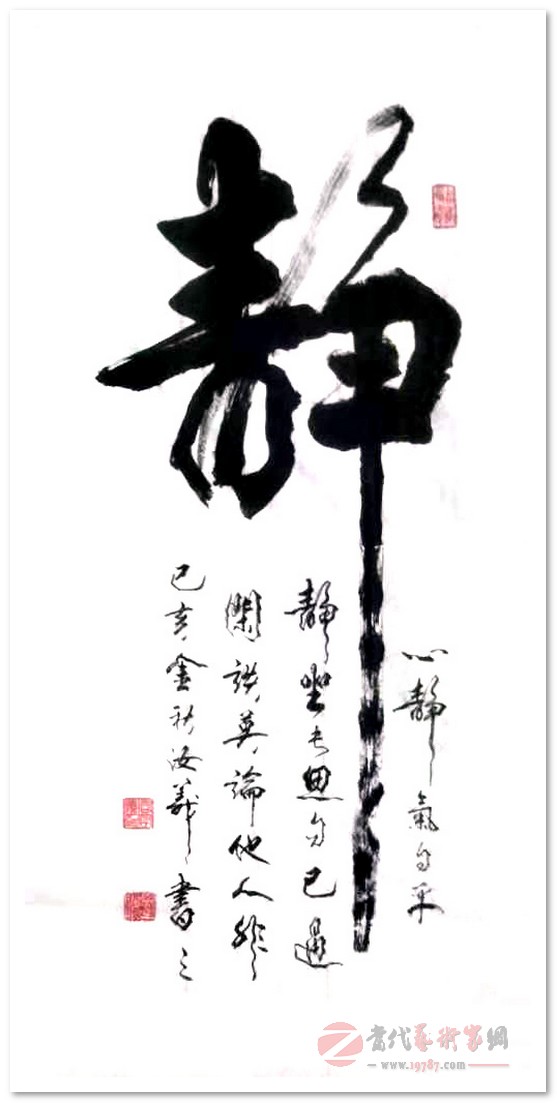 静
心静氣自平
静坐长思自己過
閑談莫論他人非
己亥金秋汝義書之
當代藝術家網
www.19787.com